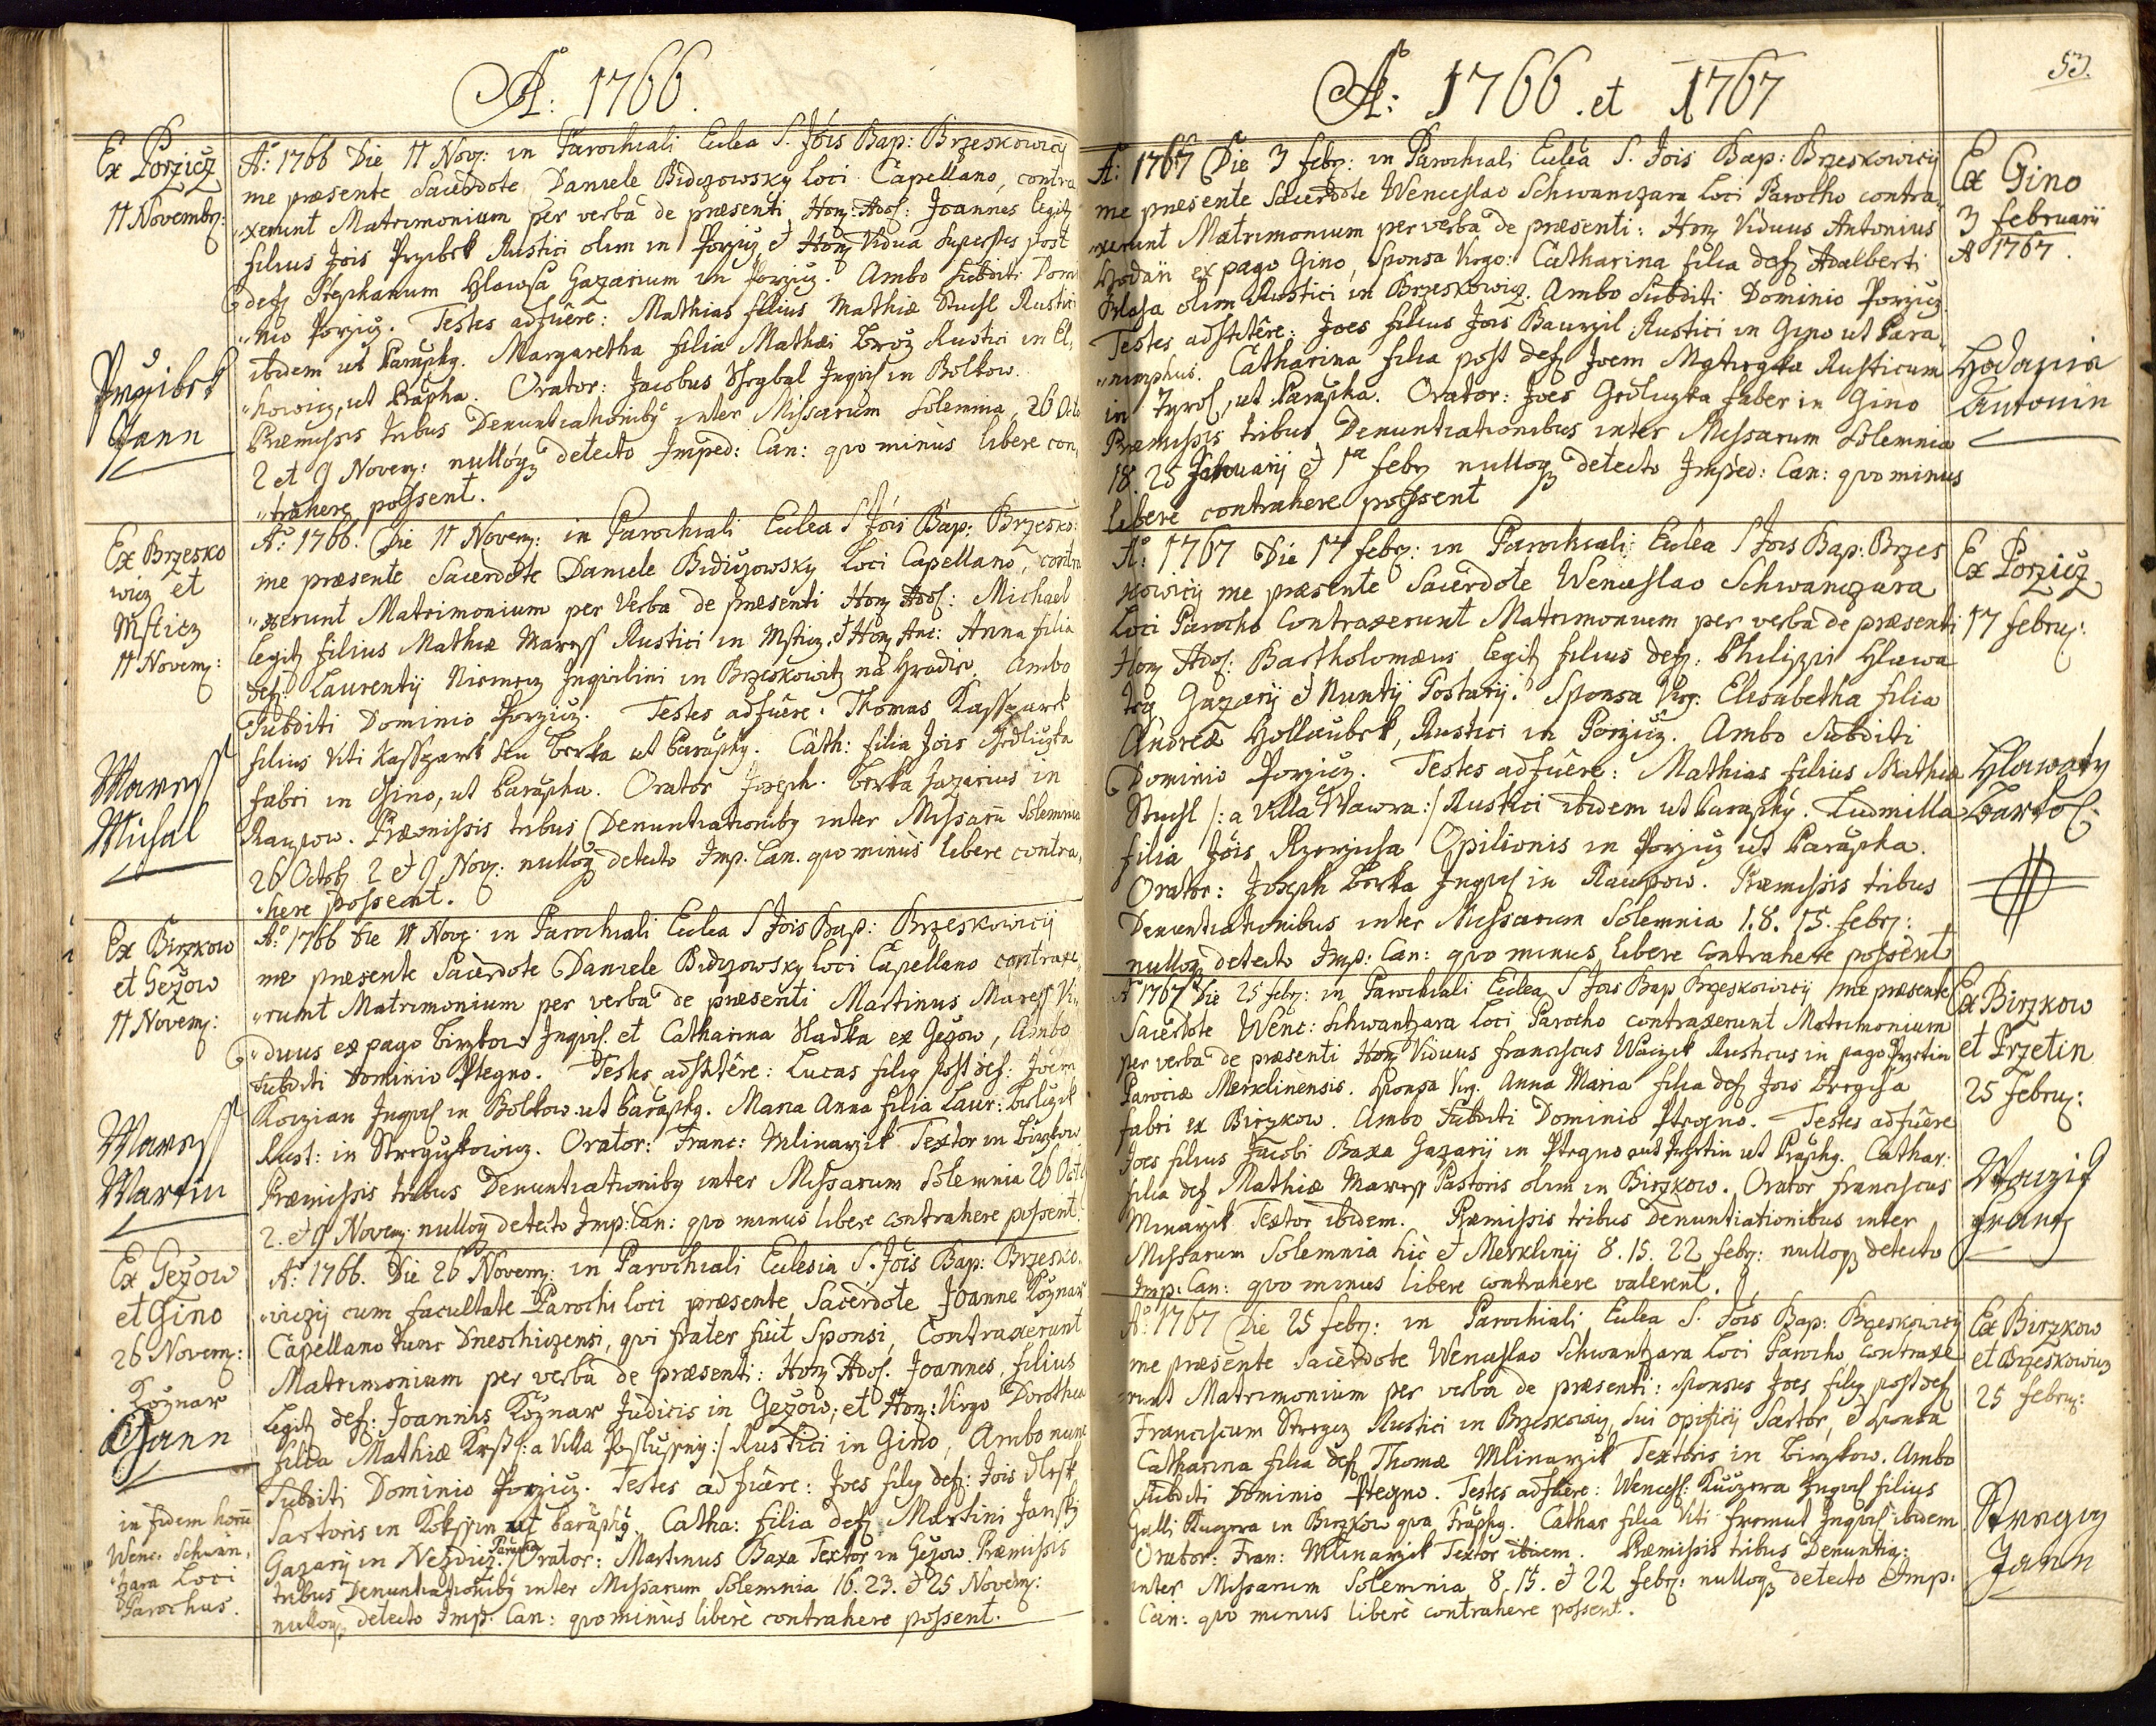 Aº: 1766.
Ex Porzicz
11 Novembr:
Przibek
Jann
Aº: 1766 Die 11 Nov: in Parochiali Ecclea S. Jois Bap: Brzeskowicij
me præsente Sacerdote Daniele Bidczowsky Loci Capellano, contra
"xerunt Matrimonium per verba de præsenti Hon: Adol: Joannes legit
filius Jois Przibek Rustici olim in Porzicz et Hon Vidua Superstes post
def Stephanum Hlawsa Gazarium in Porzicz. Ambo Subditi Domi
"nio Porzicz. Testes adfuêre: Mathias filius Mathiæ Stuchl Rustici
ibidem ut Paraph. Margaretha filia Mathæi Broz Rustici in El,
"kowicz, ut Parapha. Orator: Jacobus Inquil in Bolkow.
Præmissis tribus Denuntiationibg inter Missarum Solemnia, 26 Octo
2 et 9 Novem: nulloq detecto Imped: Can: quo minùs libere con,
"trahere possent.
Ex Brzesko
wicz et
Msticz
11 Novem:
Maress
Michal
Aº: 1766. Die 11 Novem: in Parochiali Ecclea S Jois Bap: Brzesko:
me præsente Sacerdote Daniele Bidiczowsky Loci Capellano, contra
"xerunt Matrimonium per Verba de præsenti Hon Adol: Michael
legit filius Mathiæ Maress Rustici in Msticz, et Hon Anc: Anna filia
def: Laurentij Niemecz Inquilini in Brzeskowitz na Hradie. Ambo
Subditi Dominio Porzicz. Testes adfuêre: Thomas Kasspark
filius Viti Kasspark seu Berka ut Paraph. Cath: filia Jois Gedliczka
fabri in Gino, ut Parapha. Orator Joseph Berka Gazarius in
Raupow. Præmissis tribus Denuntiationibg inter Missarū Solemnia
26 Octob 2 et 9 Nov: nulloq detecto Imp. Can. quo minùs libere contra,
"here possent.
Ex Birzkow
et Gezow
11 Novem:
Maress
Martin
Aº: 1766 Die 11 Nov: in Parochiali Ecclea S Jois Bap: Brzeskowicij
me præsente Sacerdote Daniele Bidczowsky Loci Capellano contraxe,
"runt Matrimonium per verba de præsenti Martinus Maress Vi,
"duus ex pago Birzkow Inquil. et Catharina Sladka ex Gezow, Ambo
Subditi Dominio Ptegno. Testes adstitêre: Lucas filig post def: Joem
Korzian Inquil in Bolkow ut Paraphg. Maria Anna filia Laur:
Rust: in Strzyzkowicz. Orator: Franc: Mlinarzik Textor in Birzkow
Præmissis tribus Denuntiationibg inter Missarum Solemnia 26 Oct:
2. et 9 Novem: nulloq detecto Imp: Can: quo minus libere contrahere possent.
Ex Gezow
et Gino
26 Novem:
Koznar
Jann
in fidem horū
Wenc: Schwan,
"zara Loci
Parochus.
Aº: 1766. Die 26 Novem: in Parochiali Eclesia S. Jois Bap: Brzesko,
"wiczij cum facultate Parochi loci præsente Sacerdote Joanne Koznar
Capellano tunc Dneschiczensi, qui frater fuit Sponsi, Contraxerunt
Matrimonium per verba de præsenti: Hon Adol. Joannes, filius
legit def: Joannis Koznar Judicis in Gezow; et Hon: Virgo Dorothea
filia Mathiæ /:a Villa Poslussny:/ Rustici in Gino, Ambo nunc
Subditi Dominio Porzicz. Testes adfuêre: Joes filig def: Jois
Sartoris in Kokssin ut Paraphg. Catha: filia def Martini Jansky
Gazarij in Nezdicz. Parapha Orator: Martinus Baxa Textor in Gezow. Præmissis
tribus Denuntiationibg inter Missarum Solemnia 16. 23. et 25 Novem:
nulloq detecto Imp. Can: quo minùs liberè contrahere possent.
Aº: 1766. et 1767
53.
Aº: 1767 Die 3 febr: in Parochiali Ecclea S. Jois Bap: Brzeskowicij
me præsente Sacerdote Wenceslao Schwanczara Loci Parocho contra,
"xerunt Matrimonium per verba de præsenti: Hon Viduus Antonius
Hodan ex pago Gino, Sponsa Virgo: Catharina filia def Adalberti
olim Rustici in Brzeskowicz. Ambo Subditi Dominio Porzicz
Testes adstitêre: Joes filius Jois Baurzil Rustici in Gino ut Para,
"nimphus. Catharina filia post def Joem Rusticum
in, ut Parapha. Orator: Joes Gedliczka faber in Gino
Præmissis tribus Denuntiationibus inter Missarum Solemnia
18. 25 Januarij et 1ª febr nulloq detecto Imped: Can: quo minus
libere contrahere possent
Ex Gino
3 februarii
Aº 1767.
Hodania
Antonin
Aº: 1767 Die 17 febr: in Parochiali Ecclea S Jois Bap: Brzes
kowicij me præsente Sacerdote Wenceslao Schwanczara
Loci Parocho Contraxerunt Matrimonium per verba de præsenti
Hon Adol. Bartholomæus legit filius def. Philippi Hlawa
ty Gazarij et Nuntij Postarij. Sponsa Virg. Elisabetha filia
Andreæ Hollaubek, Rustici in Porzicz. Ambo Subditi
Dominio Porzicz. Testes adfuêre: Mathias filius Mathiæ
Stuchl /:a Villa Wawra:/ Rustici ibidem ut Paraphg. Ludmilla
filia Jois Opilionis in Porzicz ut Parapha.
Orator: Joseph Berka Inquil in Raupow. Præmissis tribus
Denuntiationibus inter Missarum Solemnia 1. 8. 15. febr:
nulloq detecto Imp: Can: quo minus libere contrahere possent
Ex Porzicz
17 febru:
Hlawaty
Bartol:
Aº 1767 Die 25 febr: in Parochiali Ecclea S Jois Bap Brzeskowicij me præsente
Sacerdote Wenc: Schwantzara Loci Parocho contraxerunt Matrimonium
per verba de præsenti Hon Viduus Franciscus Waczik Rusticus in pago Przetin
Parociæ Merklinensis. Sponsa Virg. Anna Maria filia def Jois
fabri ex Birzkow. Ambo Subditi Dominio Ptegno. Testes adfuêre
Joes filius Jacobi Baxa Gazarij in Ptegno aut Przetin ut Paraphg. Cathar:
filia def Mathiæ Maress Pastoris olim in Birzkow. Orator Franciscus
Minarzik Textor ibidem. Præmissis tribus Denuntiationibus inter
Missarum Solemnia hic et Merklinij 8. 15. 22 febr: nulloq detecto
Imp: Can: quo minus libere contrahere valerent.
Ex Birzkow
et Przetin
25 febru:
Waczik
Frantz
Aº: 1767 Die 25 febr: in Parochiali Ecclea S. Jois Bap: Brzeskowicij
me præsente Sacerdote Wenceslao Schwantzara Loci Parocho contraxe
"runt Matrimonium per verba de præsenti: Sponsus Joes filig post def
Franciscum Strzegcz Rustici in Brzeskowicz, sui opificij Sartor, et Sponsa
Catharina filia def Thomæ Mlinarzik Textoris in Birzkow. Ambo
Subditi Dominio Ptegno. Testes adfuêre: Wencesl: Kuczera Inquil filius
Galli Kuczera in Birzkow qua Praphg. Cathar filia Viti Fremut Inquil ibidem
Orator: Fran: Mlinarzik Textor ibidem. Præmissis tribus Denuntia:
inter Missarum Solemnia 8. 15. et 22 febr: nulloq detecto Imp:
Can: quo minus liberè contrahere possent.
Ex Birzkow
et Brzeskowicz
25 febru:
Strzegcz
Jann